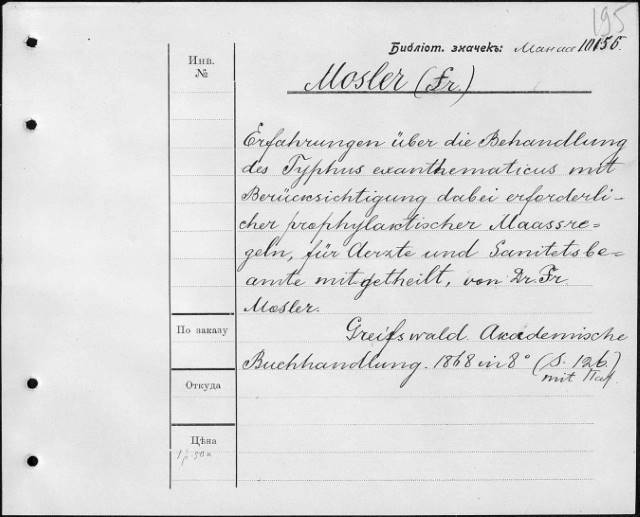 195
Библіот. значекъ: Манасс 10156.
Инв.
№
Mosler (Fr.)
Erfahrungen über die Behandlung
des Typhus exanthematicus mit
Berücksichtigung dabei erforderli-
cher prophylaktischer Maassre-
geln, für Aerzte und Sanitetsbe-
amte mitgetheilt, von Dr. Fr.
Mosler.
По заказу
Greifswald. Akademische
Buchhandlung. 1868 in 8° (S. 126.)
mit
Откуда
Цѣна